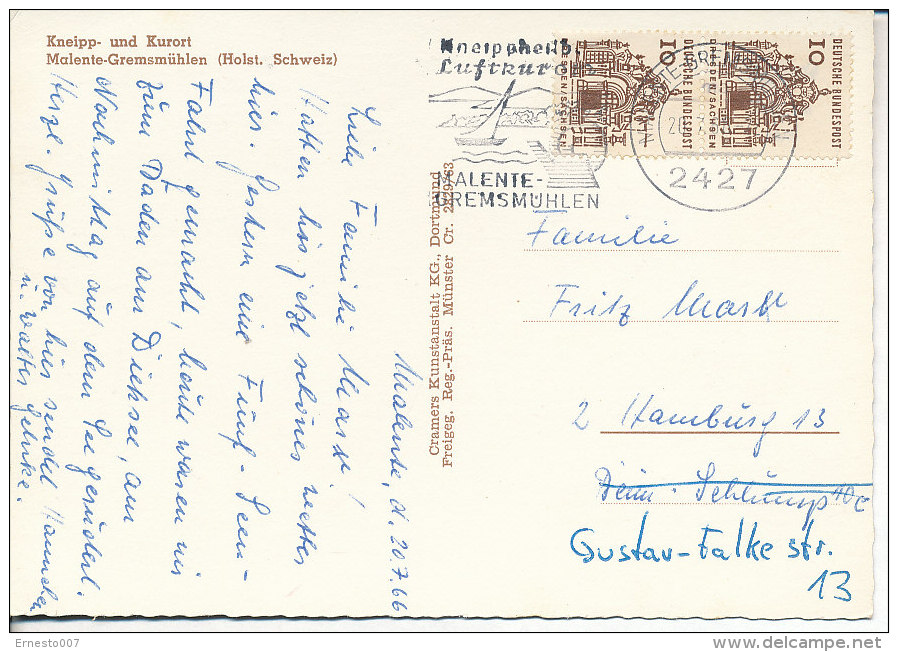 Kneipp- und Kurort
Malente-Gremsmühlen (Holst. Schweiz)
Malente, d. 20.7.66
Liebe Familie Masst!
Hatten bis jetzt schönes Wetter
hier. Gestern eine Fünf-Seen-
Fahrt gemacht, heute waren wir
zum Baden am Dieksee, am
Nachmittag auf dem See gerudert.
Herzl. Grüße von hier sendet
u. Walter Gehrke.
Cramers Kunstanstalt KG., Dortmund
Freigeg. Reg.-Präs. Münster Cr.
Kneippheilb.
Luftkurort
MALENTE-
GREMSMÜHLEN
2427
10
DEUTSCHE BUNDESPOST
DRESDEN/SACHSEN
10
DEUTSCHE BUNDESPOST
DRESDEN/SACHSEN
Familie
Fritz
2 Hamburg 13
Beim Schlump 40c
Gustav-Falke str.
13
Ernesto007
www.delcampe.net